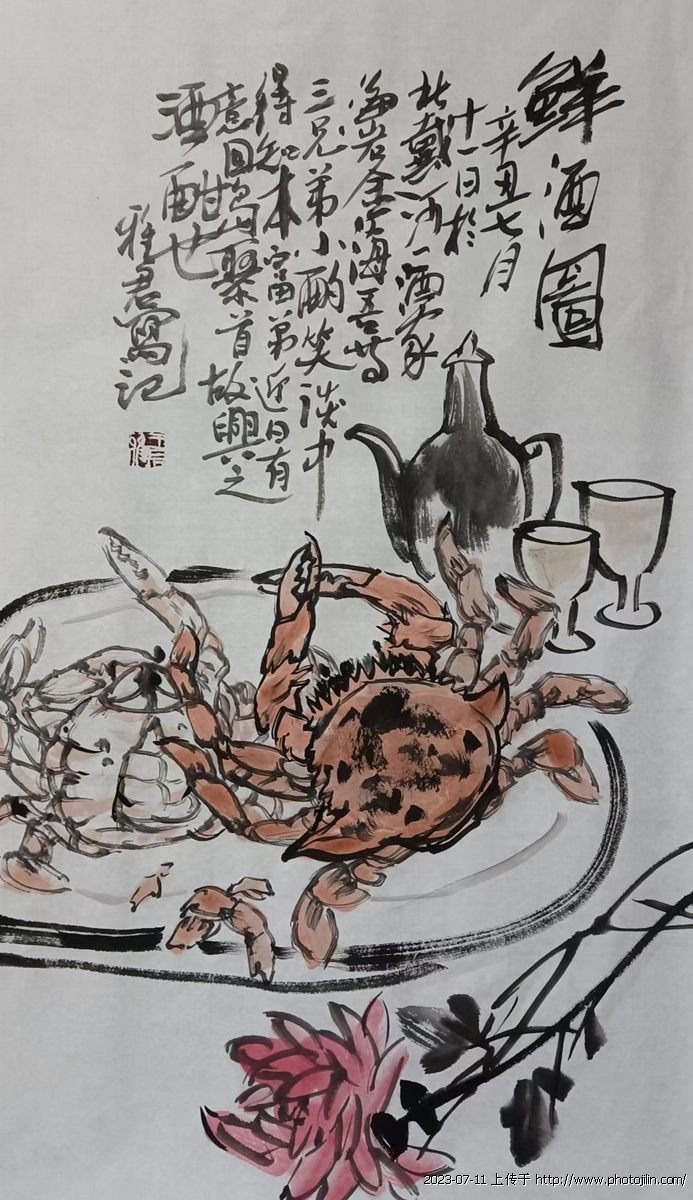 鮮酒圖
辛丑七月
十一日於
北戴河一酒家
岩全海吾等
三兄弟小酌笑談中
得知本富弟近日有
意回島聚首故興之
酒酣也
雅君寫記
2023-07-11 上传于 http://www.photojilin.com/